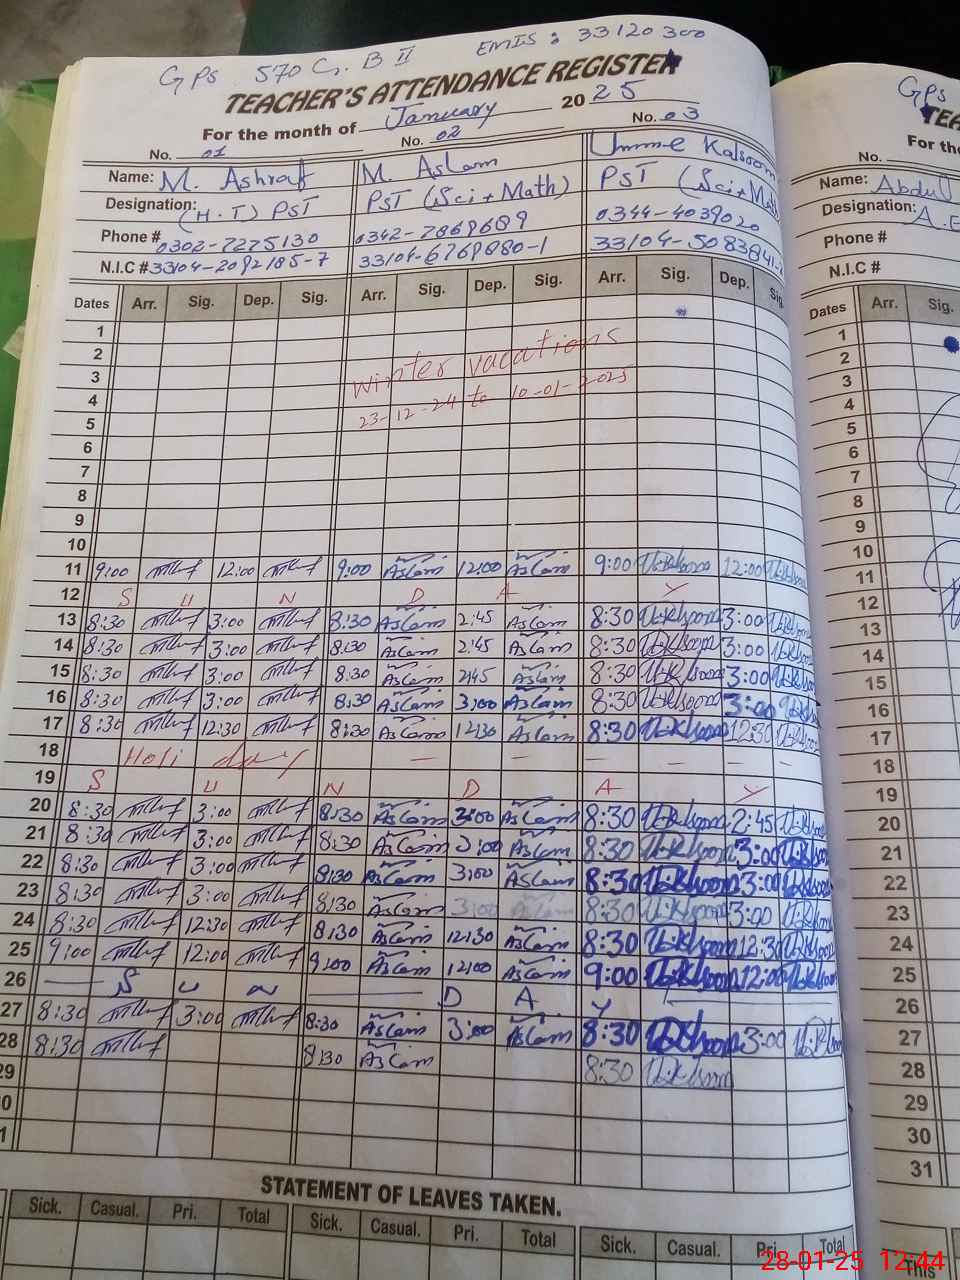 GPS 570 G.B II EMIS: 33120300
TEACHER'S ATTENDANCE REGISTER
For the month of January 2025
No. 01 No. 02 No. 03
Name: M. Ashraf M. Aslam Umme Kalsoom
Designation: (H.T) PST PST (Sci + Math) PST (Sci + Math)
Phone # 0302-7275130 0342-7869689 0344-4039020
N.I.C # 33104-2092185-7 33104-6769880-1 33104-5083841-
Dates Arr. Sig. Dep. Sig. Arr. Sig. Dep. Sig. Arr. Sig. Dep. Sig.
1
2
3
4
5
winter vacations
23-12-24 to 10-01-2025
6
7
8
9
10
11 9:00 12:00 9:00 Aslam 12:00 Aslam 9:00 U.Klsoom 12:00 U.Klsoom
12 S U N D A Y
13 8:30 3:00 8:30 Aslam 2:45 Aslam 8:30 U.Klsoom 3:00
14 8:30 3:00 8:30 Aslam 2:45 Aslam 8:30 U.Klsoom 3:00
15 8:30 3:00 8:30 Aslam 2:45 Aslam 8:30 U.Klsoom 3:00
16 8:30 3:00 8:30 Aslam 3:00 Aslam 8:30 U.Klsoom 3:00
17 8:30 12:30 8:30 Aslam 12:30 Aslam 8:30 U.Klsoom 12:30
18 Holi day — — — — — —
19 S U N D A Y
20 8:30 3:00 8:30 Aslam 3:00 Aslam 8:30 U.Klsoom 2:45
21 8:30 3:00 8:30 Aslam 3:00 Aslam 8:30 U.Klsoom 3:00
22 8:30 3:00 8:30 Aslam 3:00 Aslam 8:30 U.Klsoom 3:00
23 8:30 3:00 8:30 Aslam 3:00 Aslam 8:30 U.Klsoom 3:00
24 8:30 12:30 8:30 Aslam 12:30 Aslam 8:30 U.Klsoom 12:30
25 9:00 12:00 9:00 Aslam 12:00 Aslam 9:00 U.Klsoom 12:00
26 — S U N — D A Y
27 8:30 3:00 8:30 Aslam 3:00 Aslam 8:30 U.Klsoom 3:00
28 8:30 8:30 Aslam 8:30 U.Klsoom
29
0
1
STATEMENT OF LEAVES TAKEN.
Sick. Casual. Pri. Total Sick. Casual. Pri. Total Sick. Casual. Pri. Total
GPS
TEA
For the
No.
Name: Abdul
Designation: A.E
Phone #
N.I.C #
Dates Arr. Sig.
1
2
3
4
5
6
7
8
9
10
11
12
13
14
15
16
17
18
19
20
21
22
23
24
25
26
27
28
29
30
31
This
28-01-25 12:44